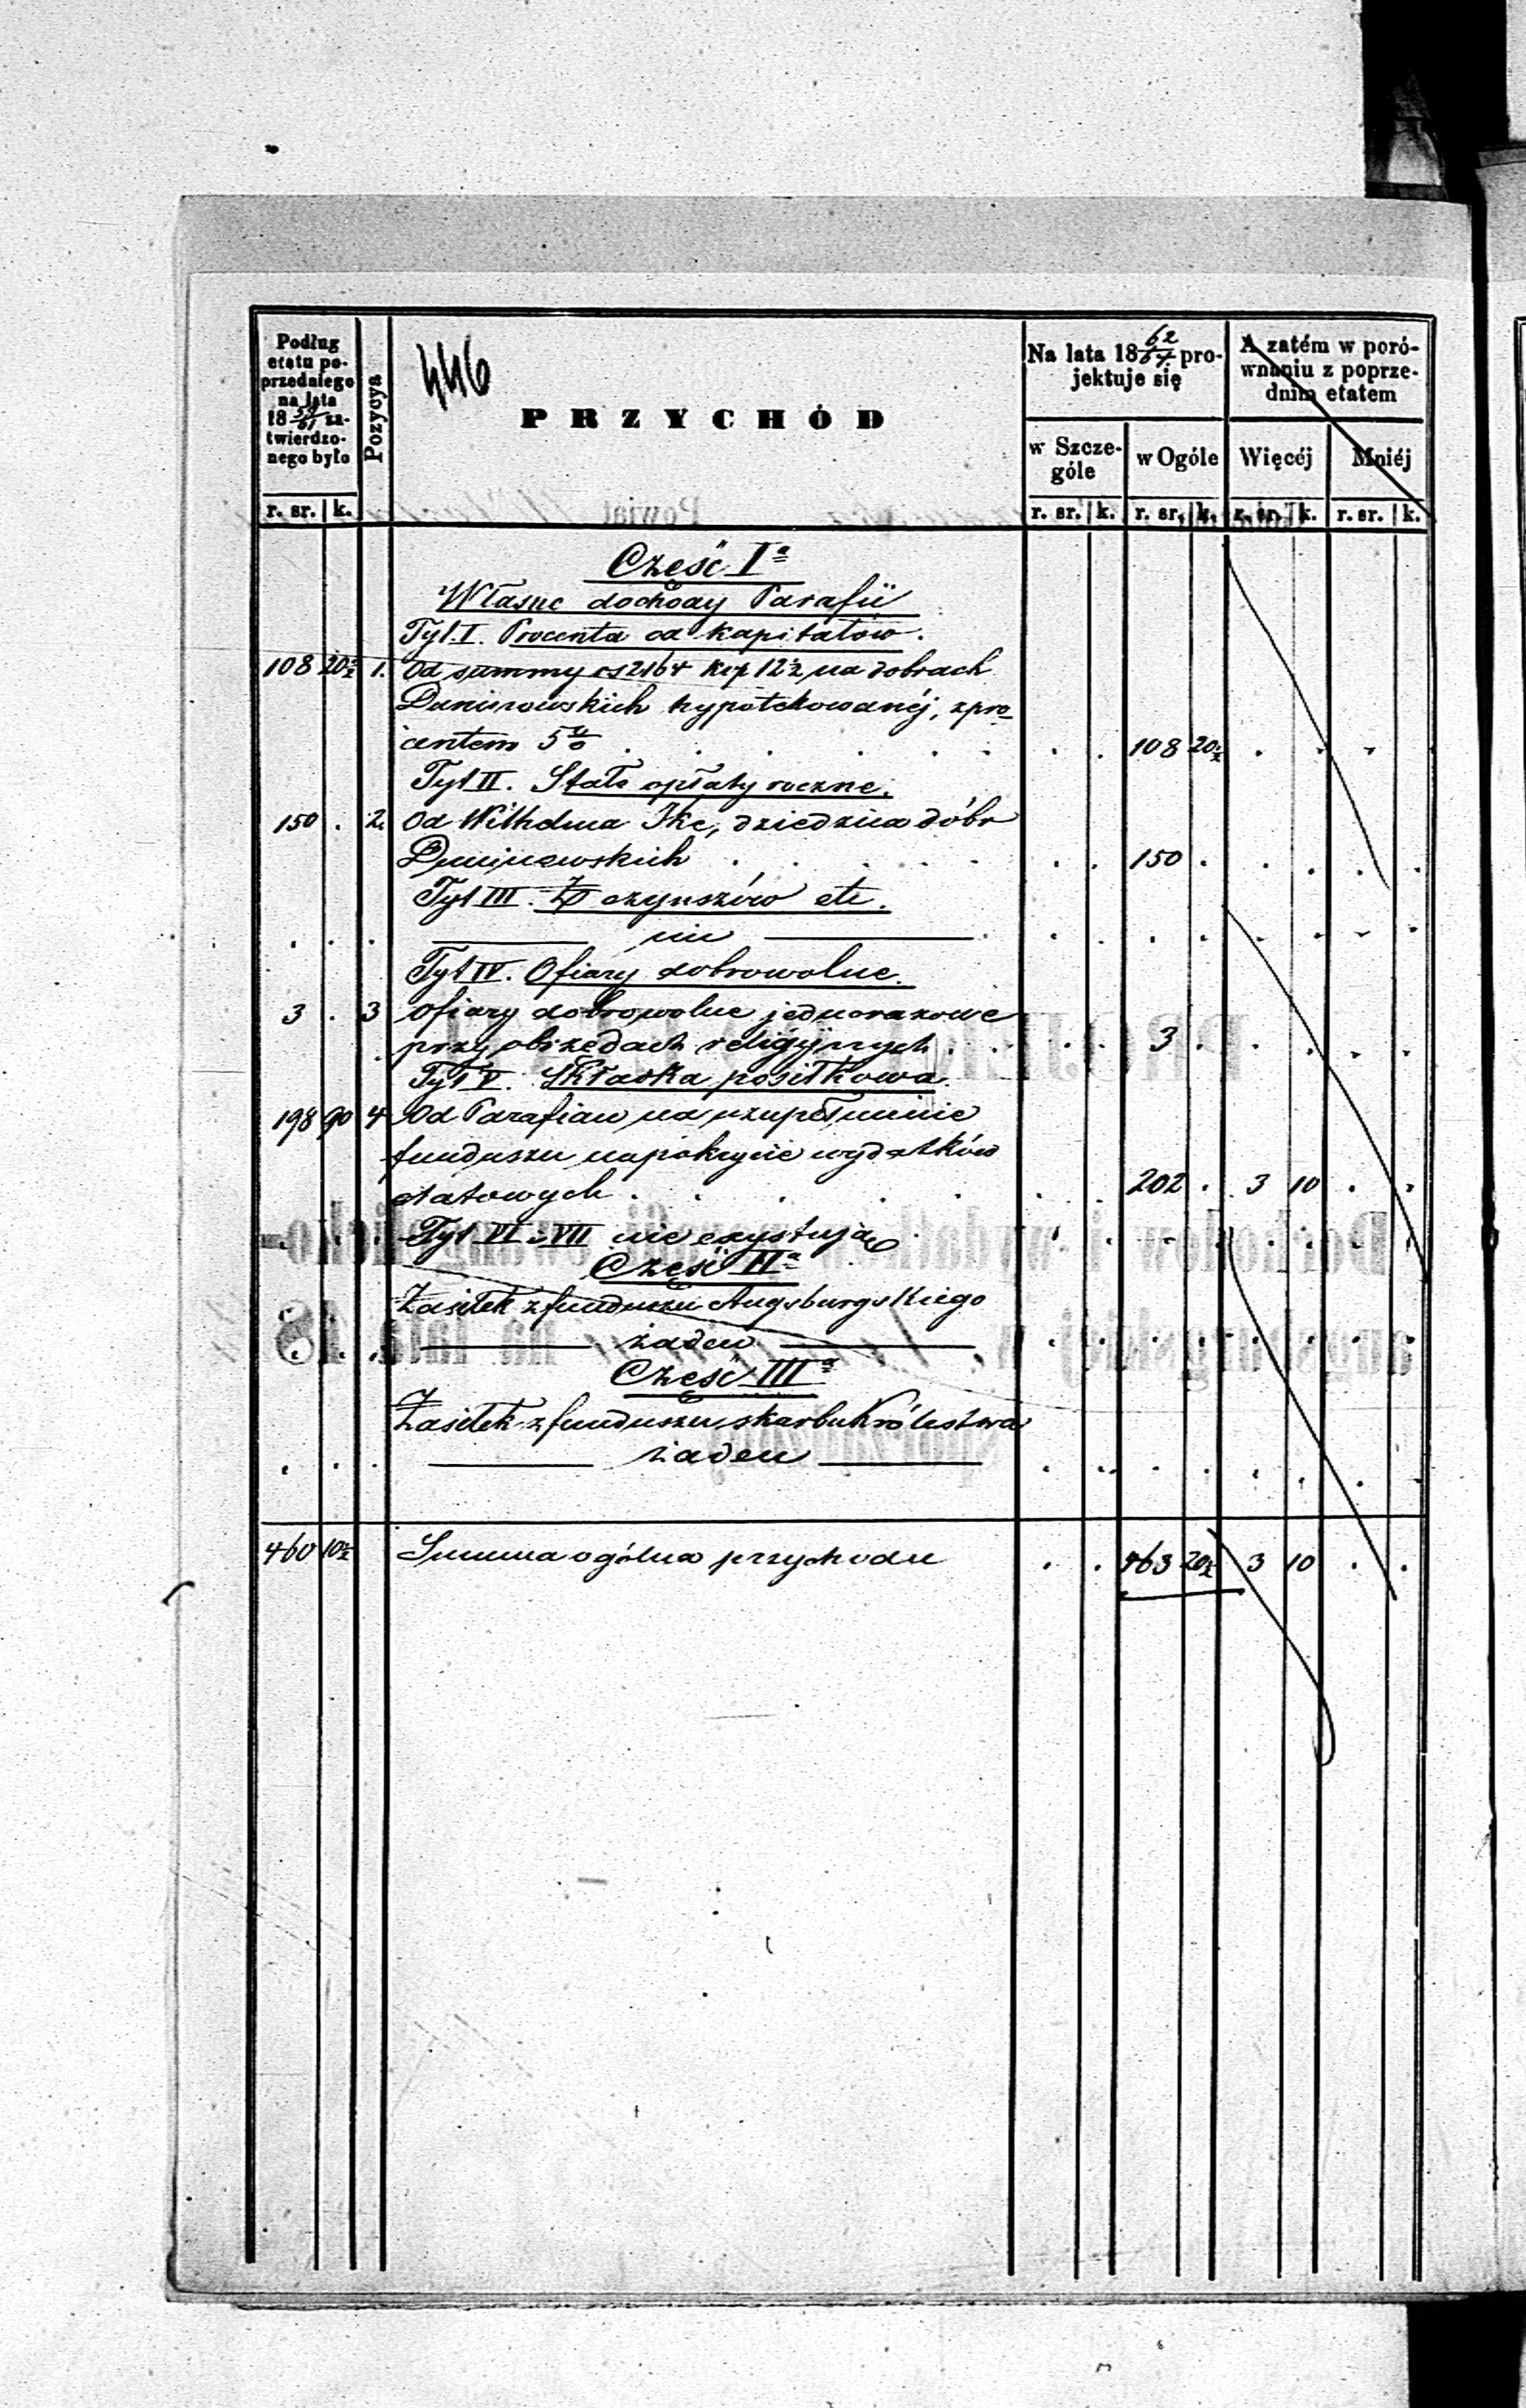 Podług etatu poprzedniego na lata 18 59/61 zatwierdzonego było
Pozycya
446
PRZYCHÓD
Na lata 18 62/67 projektuje się
A zatém w porównaniu z poprzednim etatem
w Szczególe
w Ogóle
Więcéj
Mniéj
r. sr. k.
r. sr. k. r. sr. k. r. sr. k. r. sr. k.
Część Iª
Własne dochody Parafii
Tyt. I. Procenta od kapitałów.
108 20½ 1. Od summy rs 2164 kop 12½ na dobrach
hypotekowanéj, z pro-
centem 5% . . . . . . . 108 20½
Tyt II. Stałe opłaty roczne.
150 . 2. Od Wilhelma Ike, dziedzica dóbr
. . . . . . 150 .
Tyt III. Z czynszów etc.
nic
Tyt IV. Ofiary dobrowolne.
3 . 3 Ofiary dobrowolne jednorazowe
przy obrzędach religijnych . . . 3 .
Tyt V. Składka posiłkowa.
198 90 4 Od Parafian na uzupełnienie
funduszu na pokrycie wydatków
etatowych . . . . . . 202 . 3 10 . .
Tyt VI i VII nie exystują
Część IIª
Zasiłek z funduszu Augsburgskiego
żaden
Część IIIª
Zasiłek z funduszu skarbu Królestwa
żaden
460 10½ Summa ogólna przychodu . . 463 20½ 3 10 . .